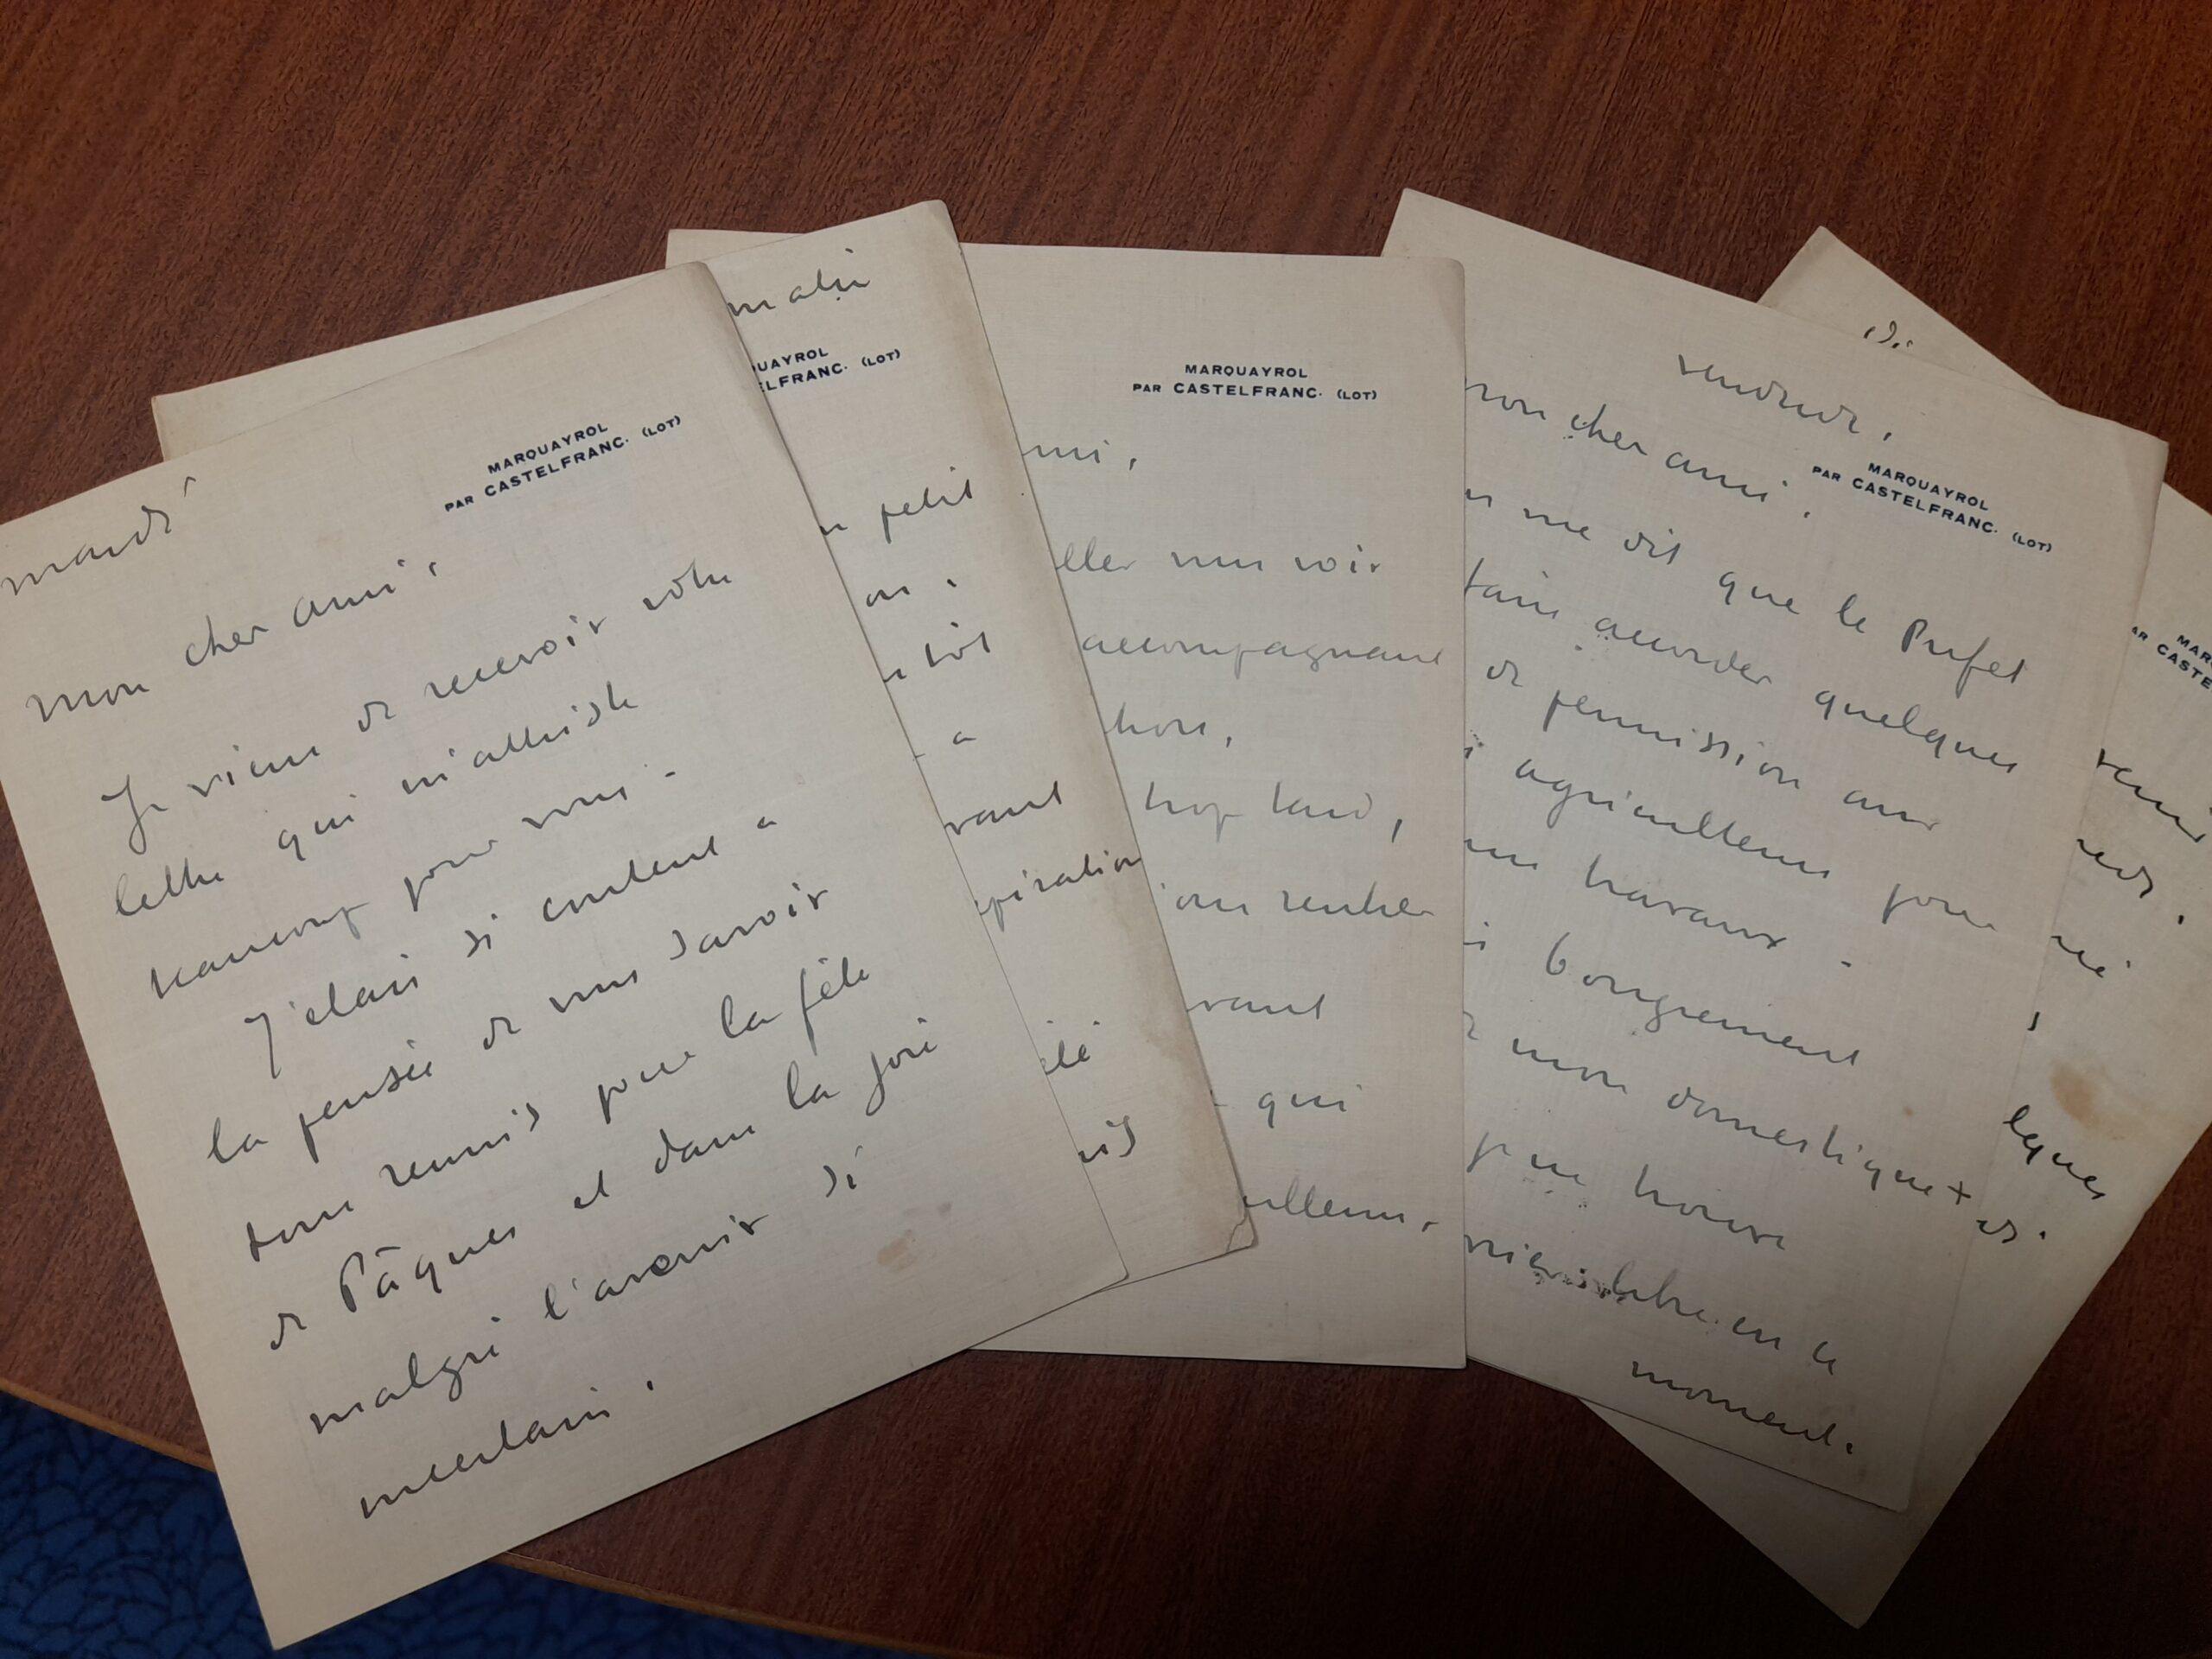 mardi
MARQUAYROL
PAR CASTELFRANC. (LOT)
mon cher ami,
Je viens de recevoir votre
lettre qui m'attriste
beaucoup pour vous -
J'étais si content à
la pensée de vous savoir
tous réunis pour la fête
de Pâques et dans la joie
malgré l'avenir si
incertain.
matin
UAYROL
ELFRANC. (LOT)
petit
on,
tôt
a
vant
piration
été
MARQUAYROL
PAR CASTELFRANC. (LOT)
mi,
ller vous voir
accompagnant
trop tard,
rentrer
vant
qui
illeurs,
vendredi,
mon cher ami,
MARQUAYROL
PAR CASTELFRANC. (LOT)
me dit que le Préfet
faire accorder quelques
de permission aux
agriculteurs pour
travaux -
bougrement
mon domestique +
je ne trouve
libre en ce
moment.
MAR
AR CASTE
lques